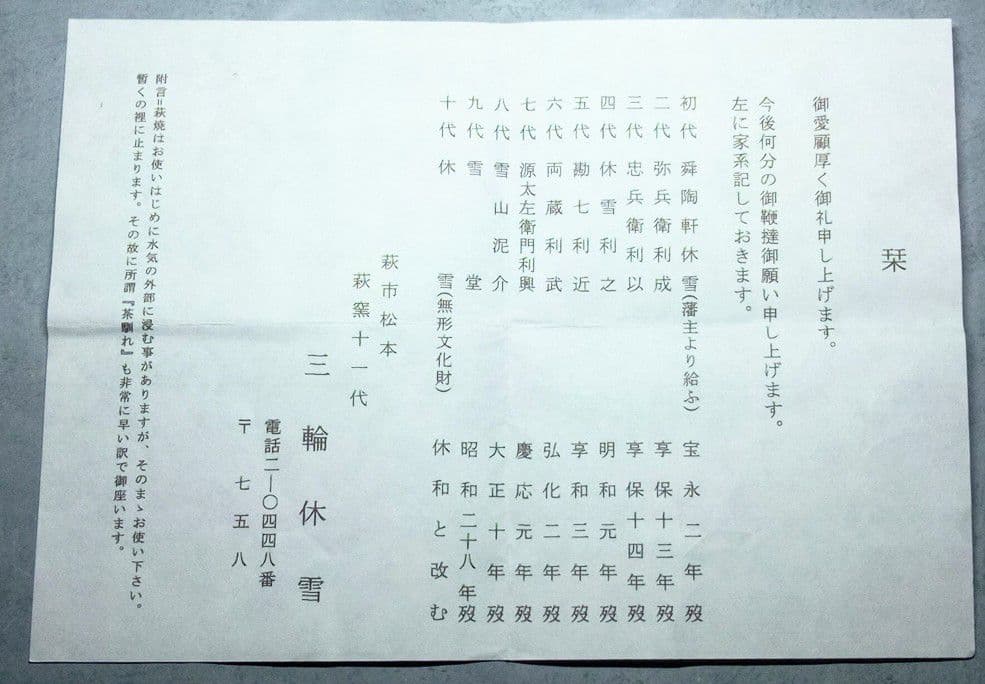 栞
御愛顧厚く御礼申し上げます。
今後何分の御鞭撻御願い申し上げます。
左に家系記しておきます。
初代 舜陶軒休雪(藩主より給ふ) 宝永二年歿
二代 弥兵衛利成 享保十三年歿
三代 忠兵衛利以 享保十四年歿
四代 休雪利之 明和元年歿
五代 勘七利近 享和三年歿
六代 両蔵利武 弘化二年歿
七代 源太左衛門利興 慶応元年歿
八代 雪山泥介 大正十年歿
九代 雪堂 昭和二十八年歿
十代 休雪(無形文化財) 休和と改む
萩市松本
萩窯十一代
三輪休雪
電話二―〇四四八番
〒七五八
附言=萩焼はお使いはじめに水気の外部に浸む事がありますが、そのまゝお使い下さい。
暫くの裡に止まります。その故に所謂『茶馴れ』も非常に早い訳で御座います。